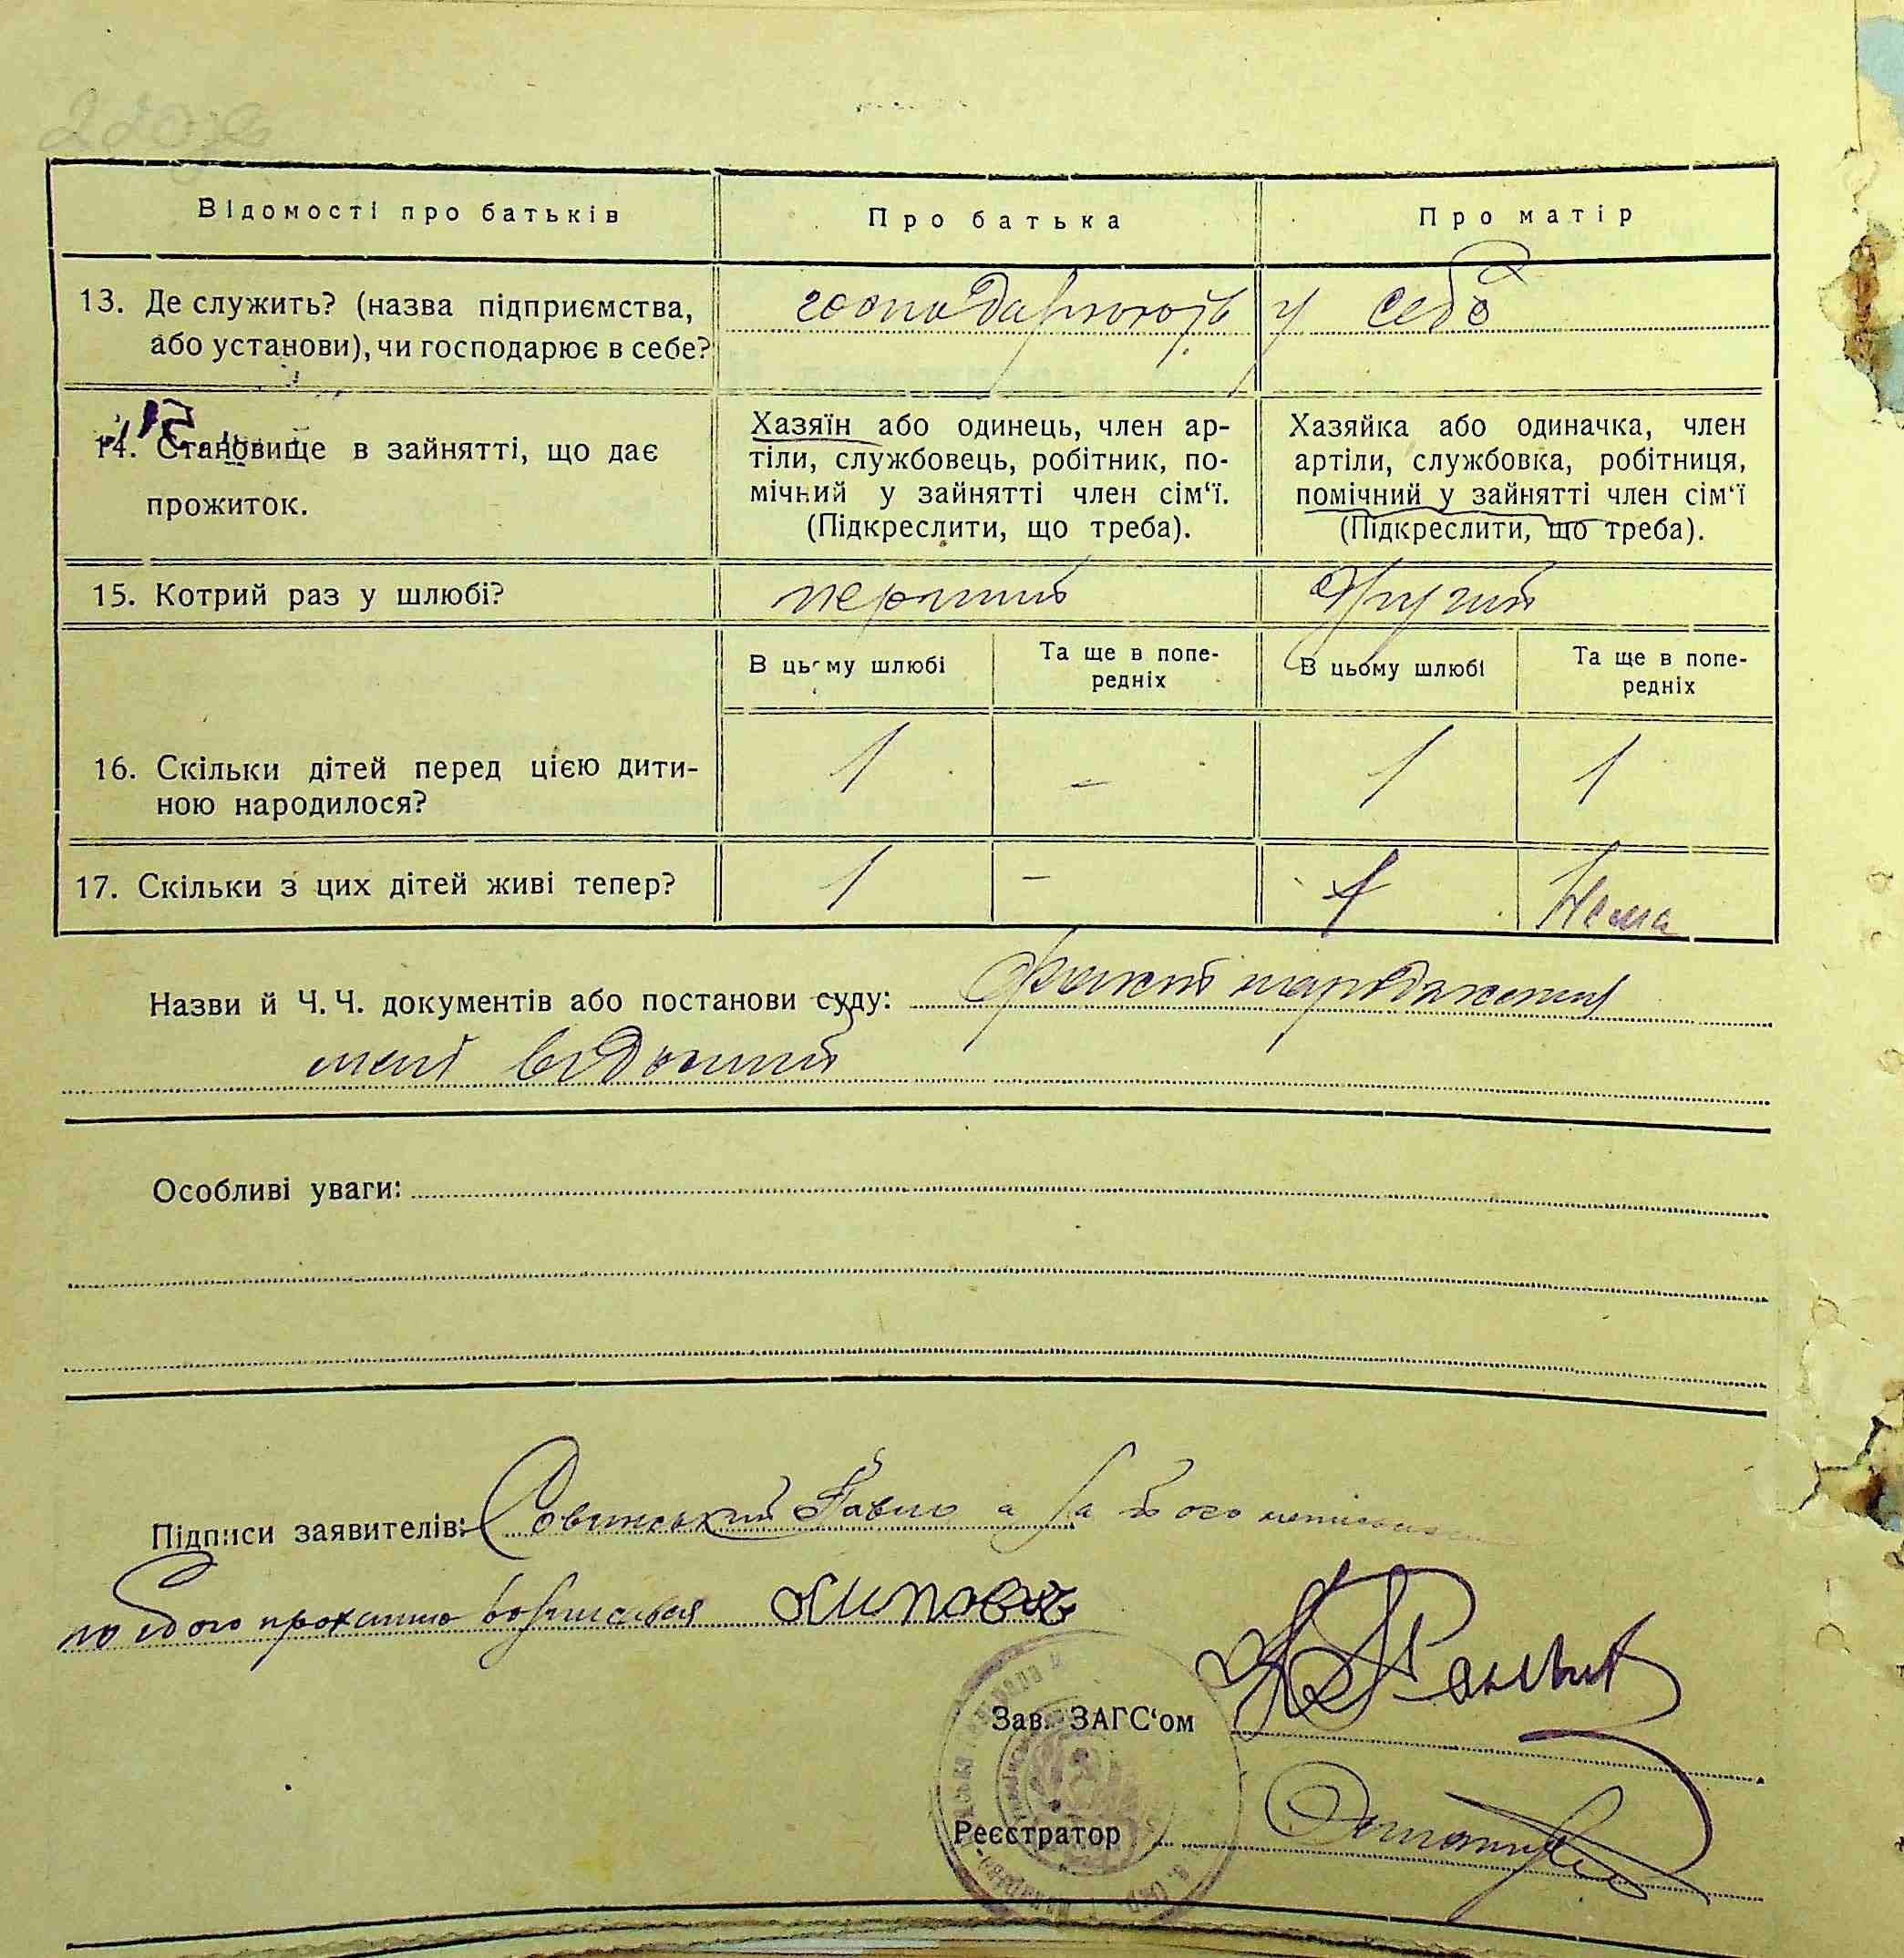 Відомості про батьків
Про батька
Про матір
13. Де служить? (назва підприємства,
або установи), чи господарює в себе?
господарюють у себе
14. Становище в зайнятті, що дає
прожиток.
Хазяїн або одинець, член ар-
тіли, службовець, робітник, по-
мічний у зайнятті член сім‘ї.
(Підкреслити, що треба).
Хазяйка або одиначка, член
артіли, службовка, робітниця,
помічний у зайнятті член сім‘ї
(Підкреслити, що треба).
15. Котрий раз у шлюбі?
перший
другий
В цьому шлюбі
Та ще в попе-
редніх
В цьому шлюбі
Та ще в попе-
редніх
16. Скільки дітей перед цією дити-
ною народилося?
1
-
1
1
17. Скільки з цих дітей живі тепер?
1
-
1
Нема
Назви й Ч.Ч. документів або постанови суду: Факт народження
мені відомий
Особливі уваги:
Підписи заявителів: Савинський Павло а за його
по його проханню
Зав. ЗАГС‘ом
Реєстратор